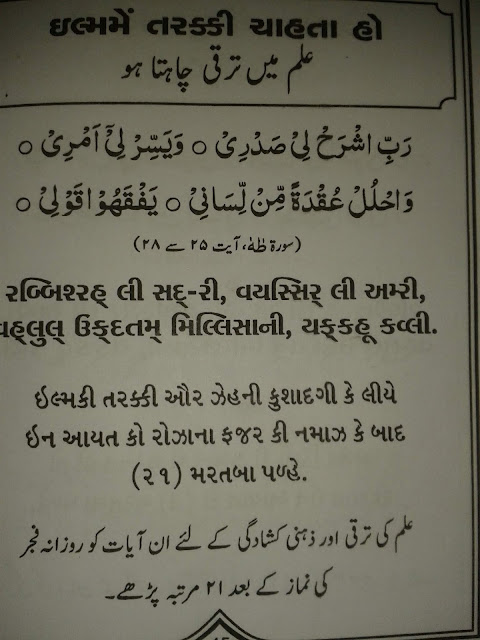 ઇલ્મમેં તરક્કી ચાહતા હો
علم میں ترقی چاہتا ہو
رَبِّ اشْرَحْ لِیْ صَدْرِیْ ○ وَیَسِّرْ لِیْٓ اَمْرِیْ ○
وَاحْلُلْ عُقْدَۃً مِّنْ لِّسَانِیْ ○ یَفْقَھُوْا قَوْلِیْ ○
(سورۃ طٰہٰ، آیت ۲۵ سے ۲۸)
રબ્બિશ્રહ્ લી સદ્-રી, વયસ્સિર્ લી અમ્રી,
વહ્લુલ્ ઉક્દતમ્ મિલ્લિસાની, યફ્કહૂ કવ્લી.
ઇલ્મકી તરક્કી ઔર ઝેહની કુશાદગી કે લીયે
ઇન આયત કો રોઝાના ફજર કી નમાઝ કે બાદ
(૨૧) મરતબા પળ્હે.
علم کی ترقی اور ذہنی کشادگی کے لئے ان آیات کو روزانہ فجر
کی نماز کے بعد ۲۱ مرتبہ پڑھے۔